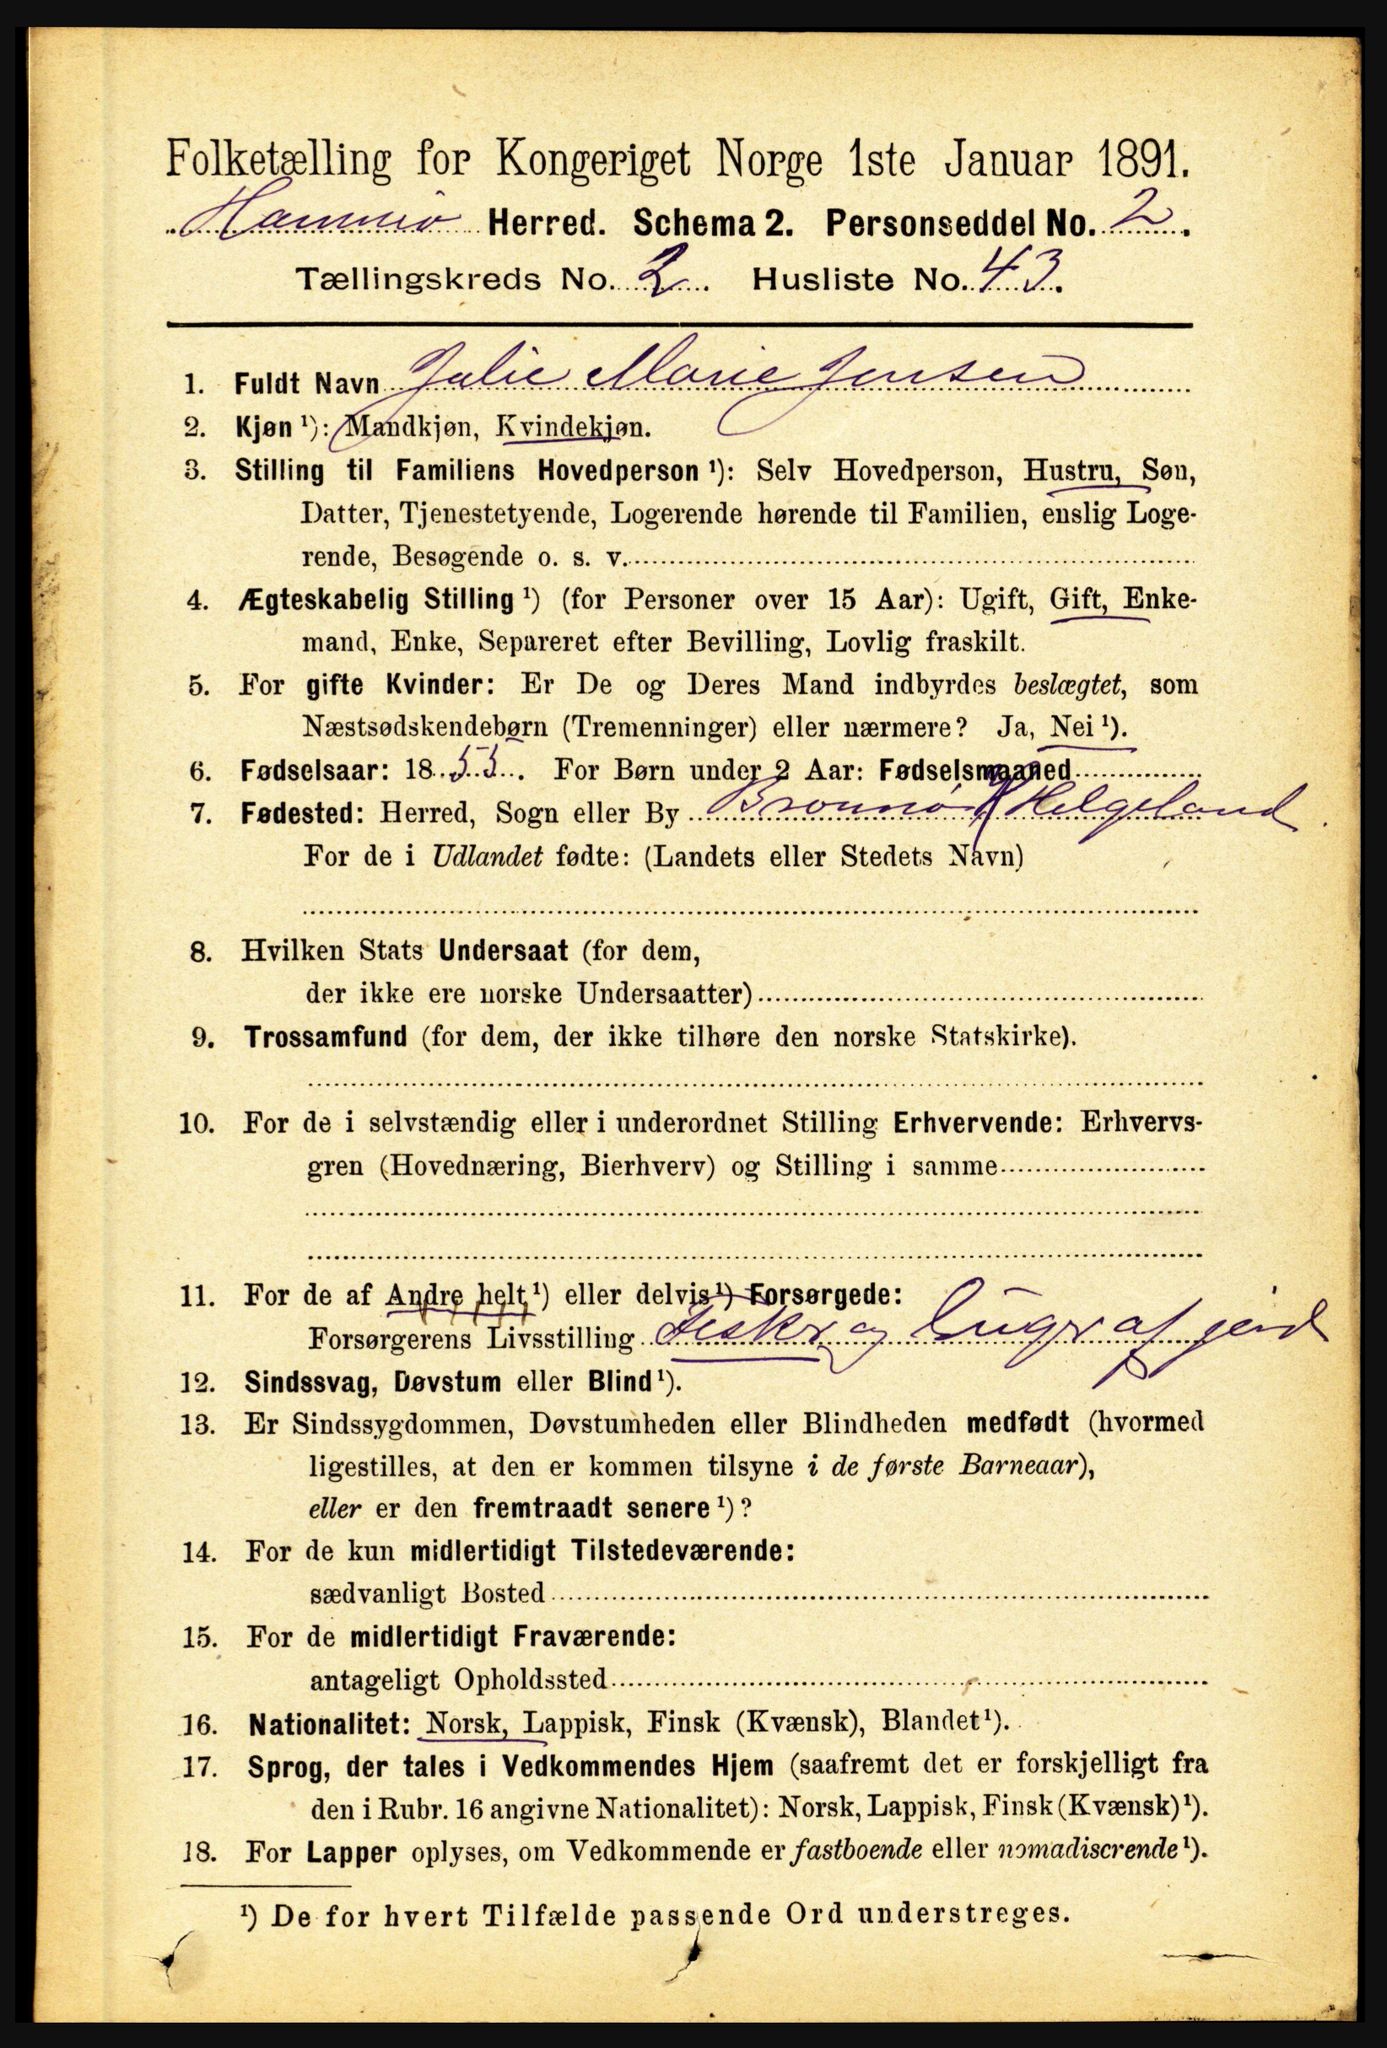 Folketælling for Kongeriget Norge 1ste Januar 1891.
Hammerø Herred. Schema 2. Personseddel No. 2.
Tællingskreds No. 2. Husliste No. 43.
1. Fuldt Navn Julie Marie Jensen
2. Kjøn ¹): Mandkjøn, Kvindekjøn.
3. Stilling til Familiens Hovedperson ¹): Selv Hovedperson, Hustru, Søn,
Datter, Tjenestetyende, Logerende hørende til Familien, enslig Loge-
rende, Besøgende o. s. v.
4. Ægteskabelig Stilling ¹) (for Personer over 15 Aar): Ugift, Gift, Enke-
mand, Enke, Separeret efter Bevilling, Lovlig fraskilt.
5. For gifte Kvinder: Er De og Deres Mand indbyrdes beslægtet, som
Næstsødskendebørn (Tremenninger) eller nærmere? Ja, Nei ¹).
6. Fødselsaar: 1855. For Børn under 2 Aar: Fødselsmaaned
7. Fødested: Herred, Sogn eller By Brønnø Helgeland
For de i Udlandet fødte: (Landets eller Stedets Navn)
8. Hvilken Stats Undersaat (for dem,
der ikke ere norske Undersaatter)
9. Trossamfund (for dem, der ikke tilhøre den norske Statskirke).
10. For de i selvstændig eller i underordnet Stilling Erhvervende: Erhvervs-
gren (Hovednæring, Bierhverv) og Stilling i samme
11. For de af Andre helt ¹) eller delvis ¹) Forsørgede:
Forsørgerens Livsstilling Fisker og Bruger af jord
12. Sindssvag, Døvstum eller Blind ¹).
13. Er Sindssygdommen, Døvstumheden eller Blindheden medfødt (hvormed
ligestilles, at den er kommen tilsyne i de første Barneaar),
eller er den fremtraadt senere ¹)?
14. For de kun midlertidigt Tilstedeværende:
sædvanligt Bosted
15. For de midlertidigt Fraværende:
antageligt Opholdssted
16. Nationalitet: Norsk, Lappisk, Finsk (Kvænsk), Blandet ¹).
17. Sprog, der tales i Vedkommendes Hjem (saafremt det er forskjelligt fra
den i Rubr. 16 angivne Nationalitet): Norsk, Lappisk, Finsk (Kvænsk) ¹).
18. For Lapper oplyses, om Vedkommende er fastboende eller nomadiserende ¹).
¹) De for hvert Tilfælde passende Ord understreges.